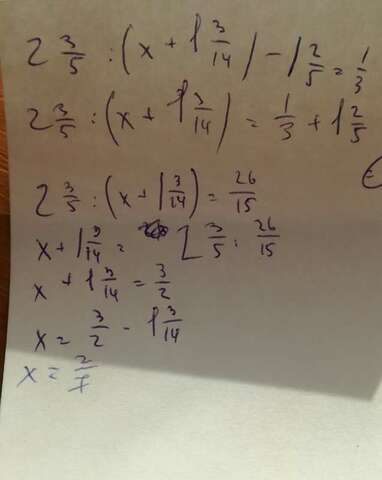 2 3/5 : (x + 1 3/14) - 1 2/5 = 1/3
2 3/5 : (x + 1 3/14) = 1/3 + 1 2/5
2 3/5 : (x + 1 3/14) = 26/15
x + 1 3/14 = 2 3/5 : 26/15
x + 1 3/14 = 3/2
x = 3/2 - 1 3/14
x = 2/7